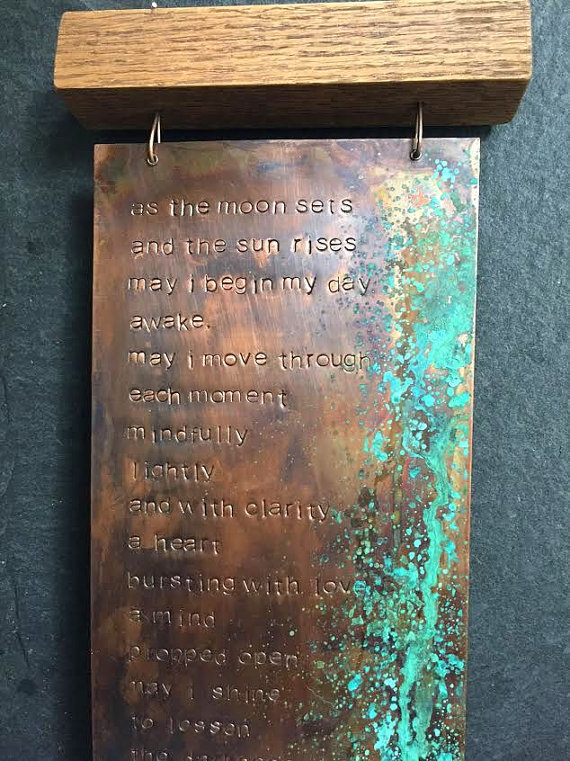 as the moon sets
and the sun rises
may i begin my day
awake.
may i move through
each moment
mindfully
lightly
and with clarity.
a heart
bursting with love
a mind
propped open
may i shine
to lesson
the